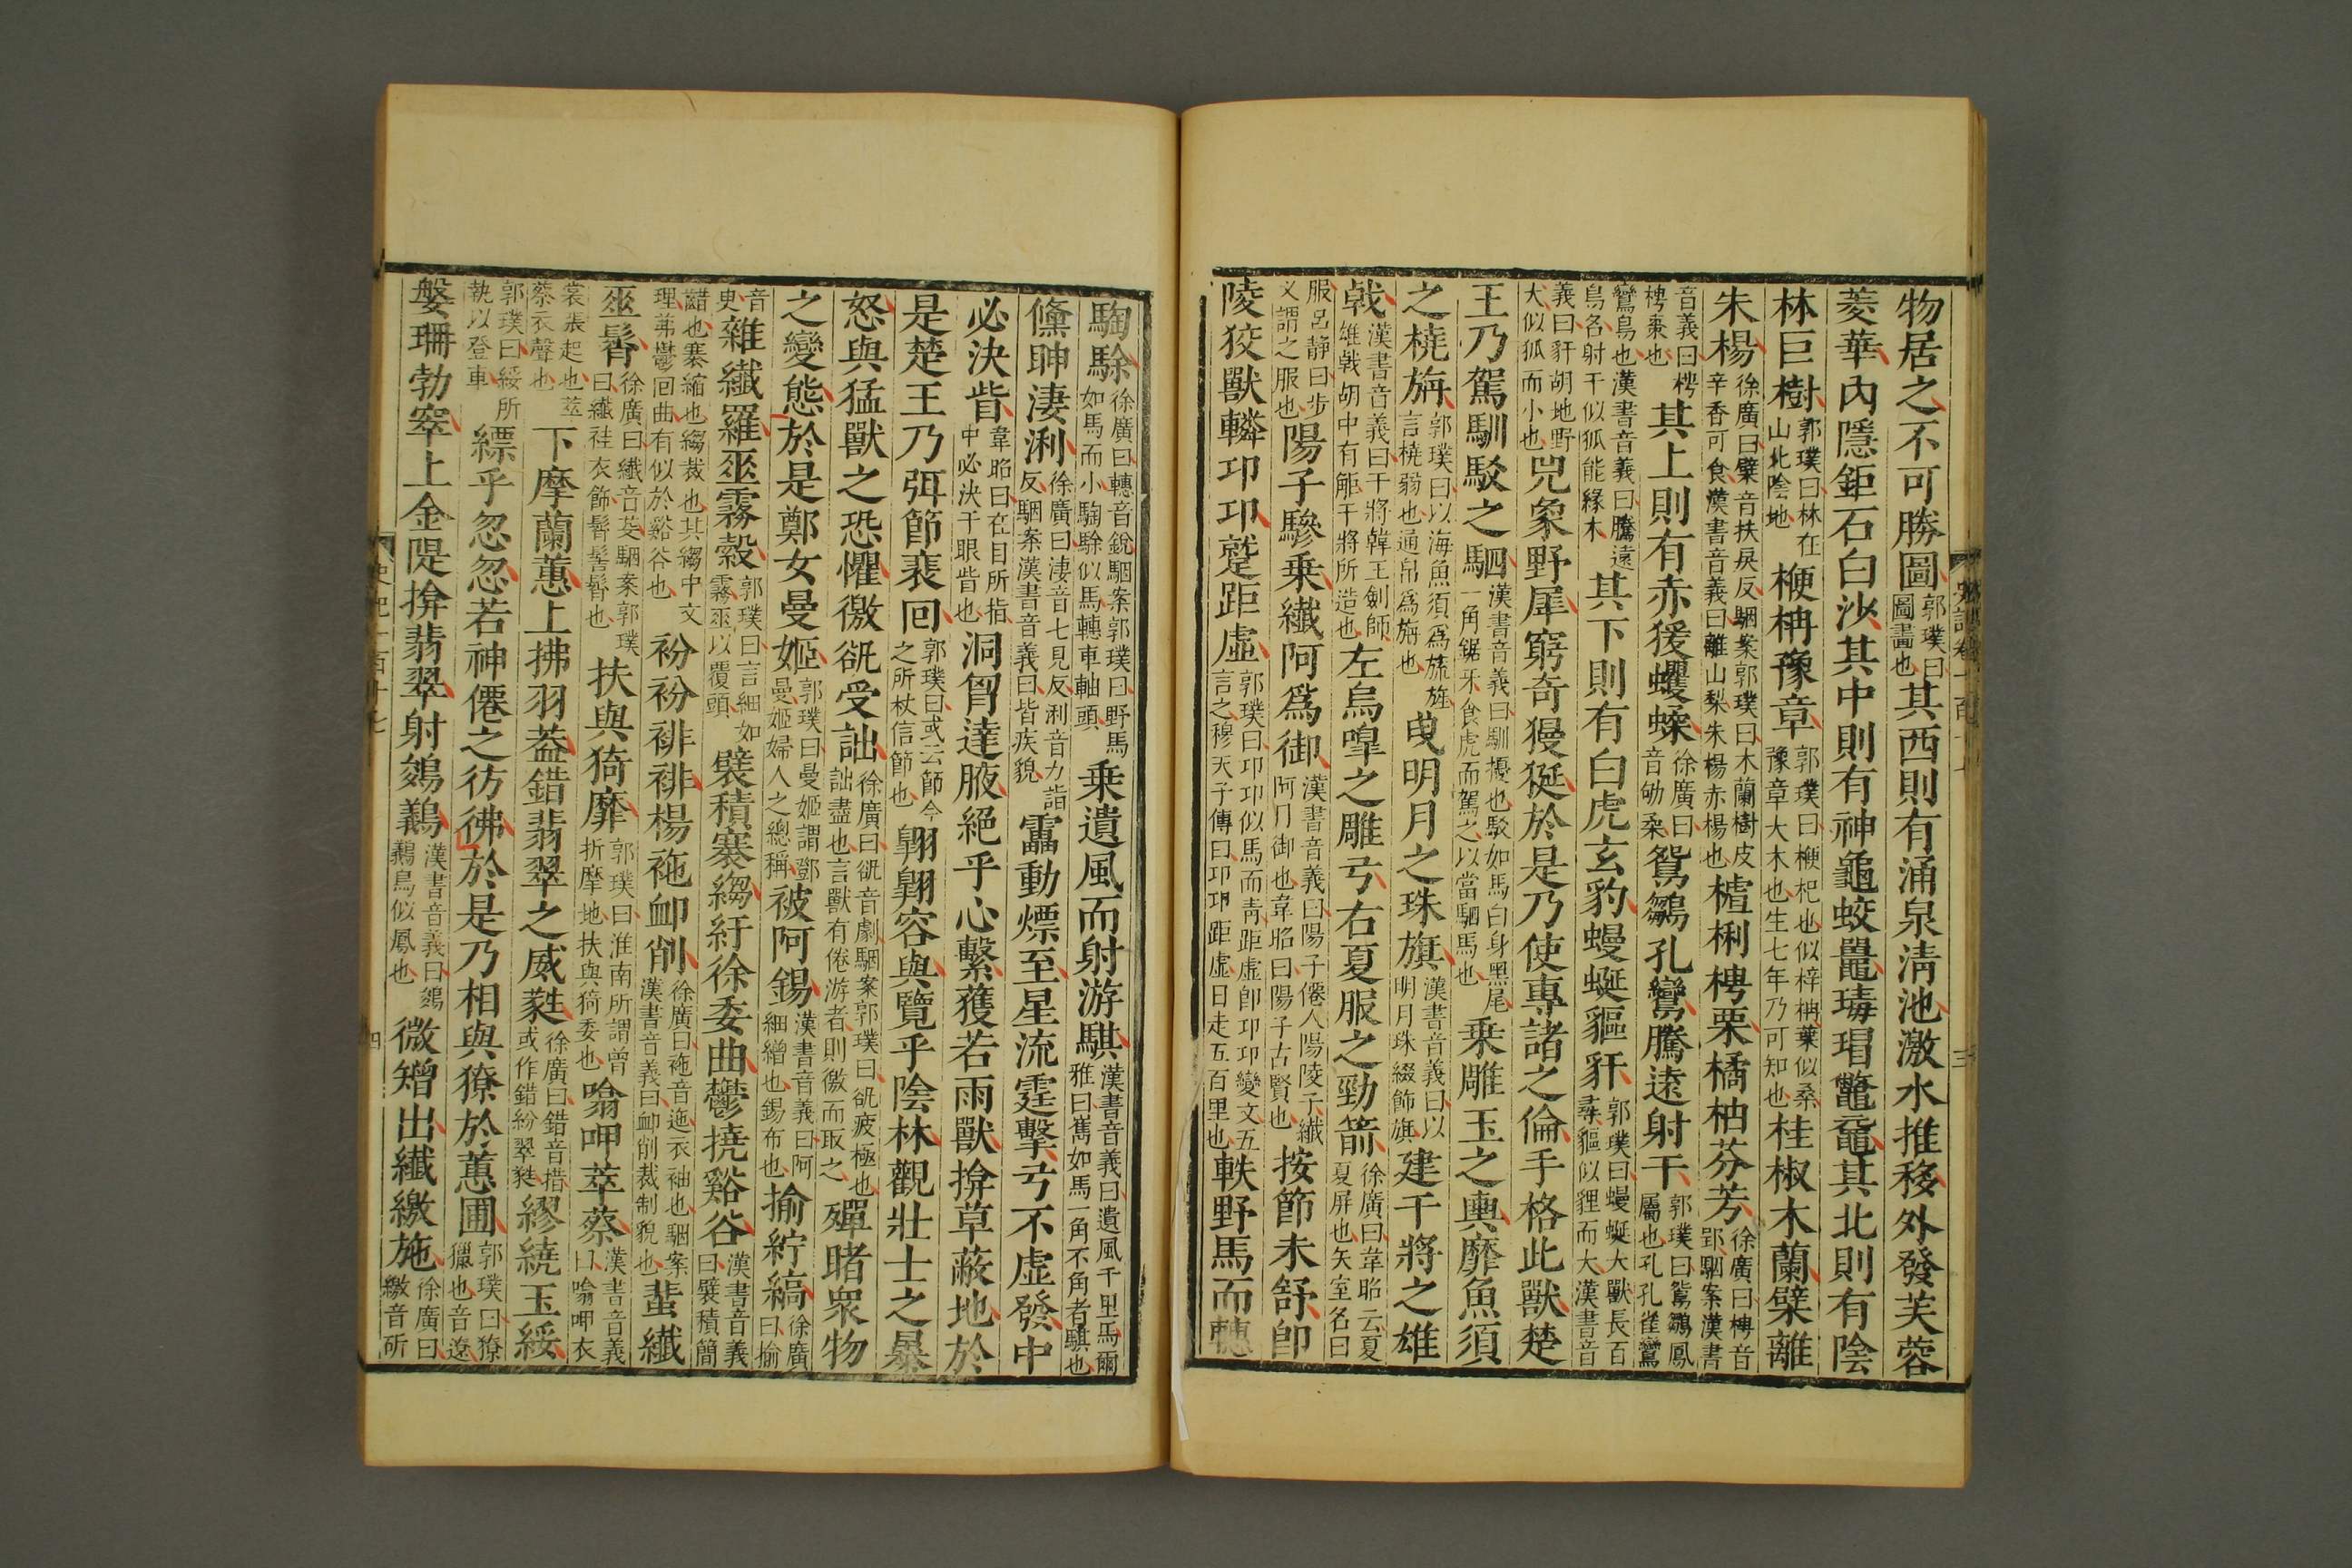 物居之不可勝圖郭璞曰圖畫也其西則有涌泉清池激水推移外發芙蓉
菱華內隱鉅石白沙其中則有神龜蛟鼉瑇瑁鼈黿其北則有陰
林巨樹郭璞曰林在山北陰地楩柟豫章郭璞曰楩杞也似梓柟葉似桑豫章大木也生七年乃可知也桂椒木蘭檗離
朱楊徐廣曰檗音扶戾反駰案郭璞曰木蘭樹皮辛香可食漢書音義曰離山梨朱楊赤楊也樝梸梬栗橘柚芬芳徐廣曰梬音郢駰案漢書
音義曰梬梬棗也其上則有赤猨蠷蝚徐廣曰音劬柔鵷鶵孔鸞騰遠射干郭璞曰鵷鶵鳳屬也孔孔雀鸞
鸞鳥也漢書音義曰騰遠鳥名射干似狐能緣木其下則有白虎玄豹蟃蜒貙豻郭璞曰蟃蜒大獸長百尋貙似貍而大漢書音
義曰豻胡地野犬似狐而小也兕象野犀窮奇獌狿於是乃使專諸之倫手格此獸楚
王乃駕馴駁之駟漢書音義曰馴擾也駁如馬白身黑尾一角鋸牙食虎而駕之以當駟馬也乘雕玉之輿靡魚須
之橈旃郭璞曰以海魚須爲旒旌言橈弱也通帛爲旃也曳明月之珠旗漢書音義曰以明月珠綴飾旗建干將之雄
戟漢書音義曰干將韓王劍師雄戟胡中有𩨭干將所造也左烏嘷之雕弓右夏服之勁箭徐廣曰韋昭云夏夏屏也矢室名曰
服呂静曰步叉謂之服也陽子驂乘纖阿爲御漢書音義曰陽子僊人陽陵子纖阿月御也韋昭曰陽子古賢也按節未舒卽
陵狡獸轔卭卭蹵距虛郭璞曰卭卭似馬而青距虛卽卭卭變文五言之穆天子傳曰卭卭距虛日走五百里也軼野馬而轊
騊駼徐廣曰轊音銳駰案郭璞曰野馬如馬而小騊駼似馬轊車軸頭乘遺風而射游騏漢書音義曰遺風千里馬爾雅曰嶲如馬一角不角者騏也
儵眒淒浰徐廣曰淒音七見反浰音力詣反駰案漢書音義曰皆疾貌靁動熛至星流霆擊弓不虛發中
必決眥韋昭曰在目所指中必決于眼眥也洞胷達腋絕乎心繫獲若雨獸揜草蔽地於
是楚王乃弭節裴回郭璞曰或云節今之所杖信節也翺翔容與覽乎陰林觀壯士之暴
怒與猛獸之恐懼徼𠊱受詘徐廣曰𠊱音劇駰案郭璞曰𠊱疲極也詘盡也言獸有倦游者則徼而取之殫睹衆物
之變態於是鄭女曼姬郭璞曰曼姬謂鄧曼姬婦人之總稱被阿錫漢書音義曰阿細繒也錫布也揄紵縞徐廣曰揄
音史雜纖羅垂霧縠郭璞曰言細如霧垂以覆頭襞積褰縐紆徐委曲鬱橈谿谷漢書音義曰襞積簡
齰也褰縮也縐裁也其縐中文理茀鬱迴曲有似於谿谷也衯衯裶裶楊袘卹削徐廣曰袘音迤衣袖也駰案漢書音義曰卹削裁制貌也蜚纖
垂髾徐廣曰纖音芟駰案郭璞曰纖袿衣飾髾髻髾也扶與猗靡郭璞曰淮南所謂曾折摩地扶與猗委也噏呷萃蔡漢書音義曰噏呷衣
裳張起也萃蔡衣聲也下摩蘭蕙上拂羽蓋錯翡翠之威蕤徐廣曰錯音措或作錯紛翠蕤繆繞玉綏
郭璞曰綏所執以登車縹乎忽忽若神僊之彷彿於是乃相與獠於蕙圃郭璞曰獠獵也音遼
媻珊勃窣上金隄揜翡翠射鵕鸃漢書音義曰鵕鸃鳥似鳳也微矰出纖繳施徐廣曰繳音斫